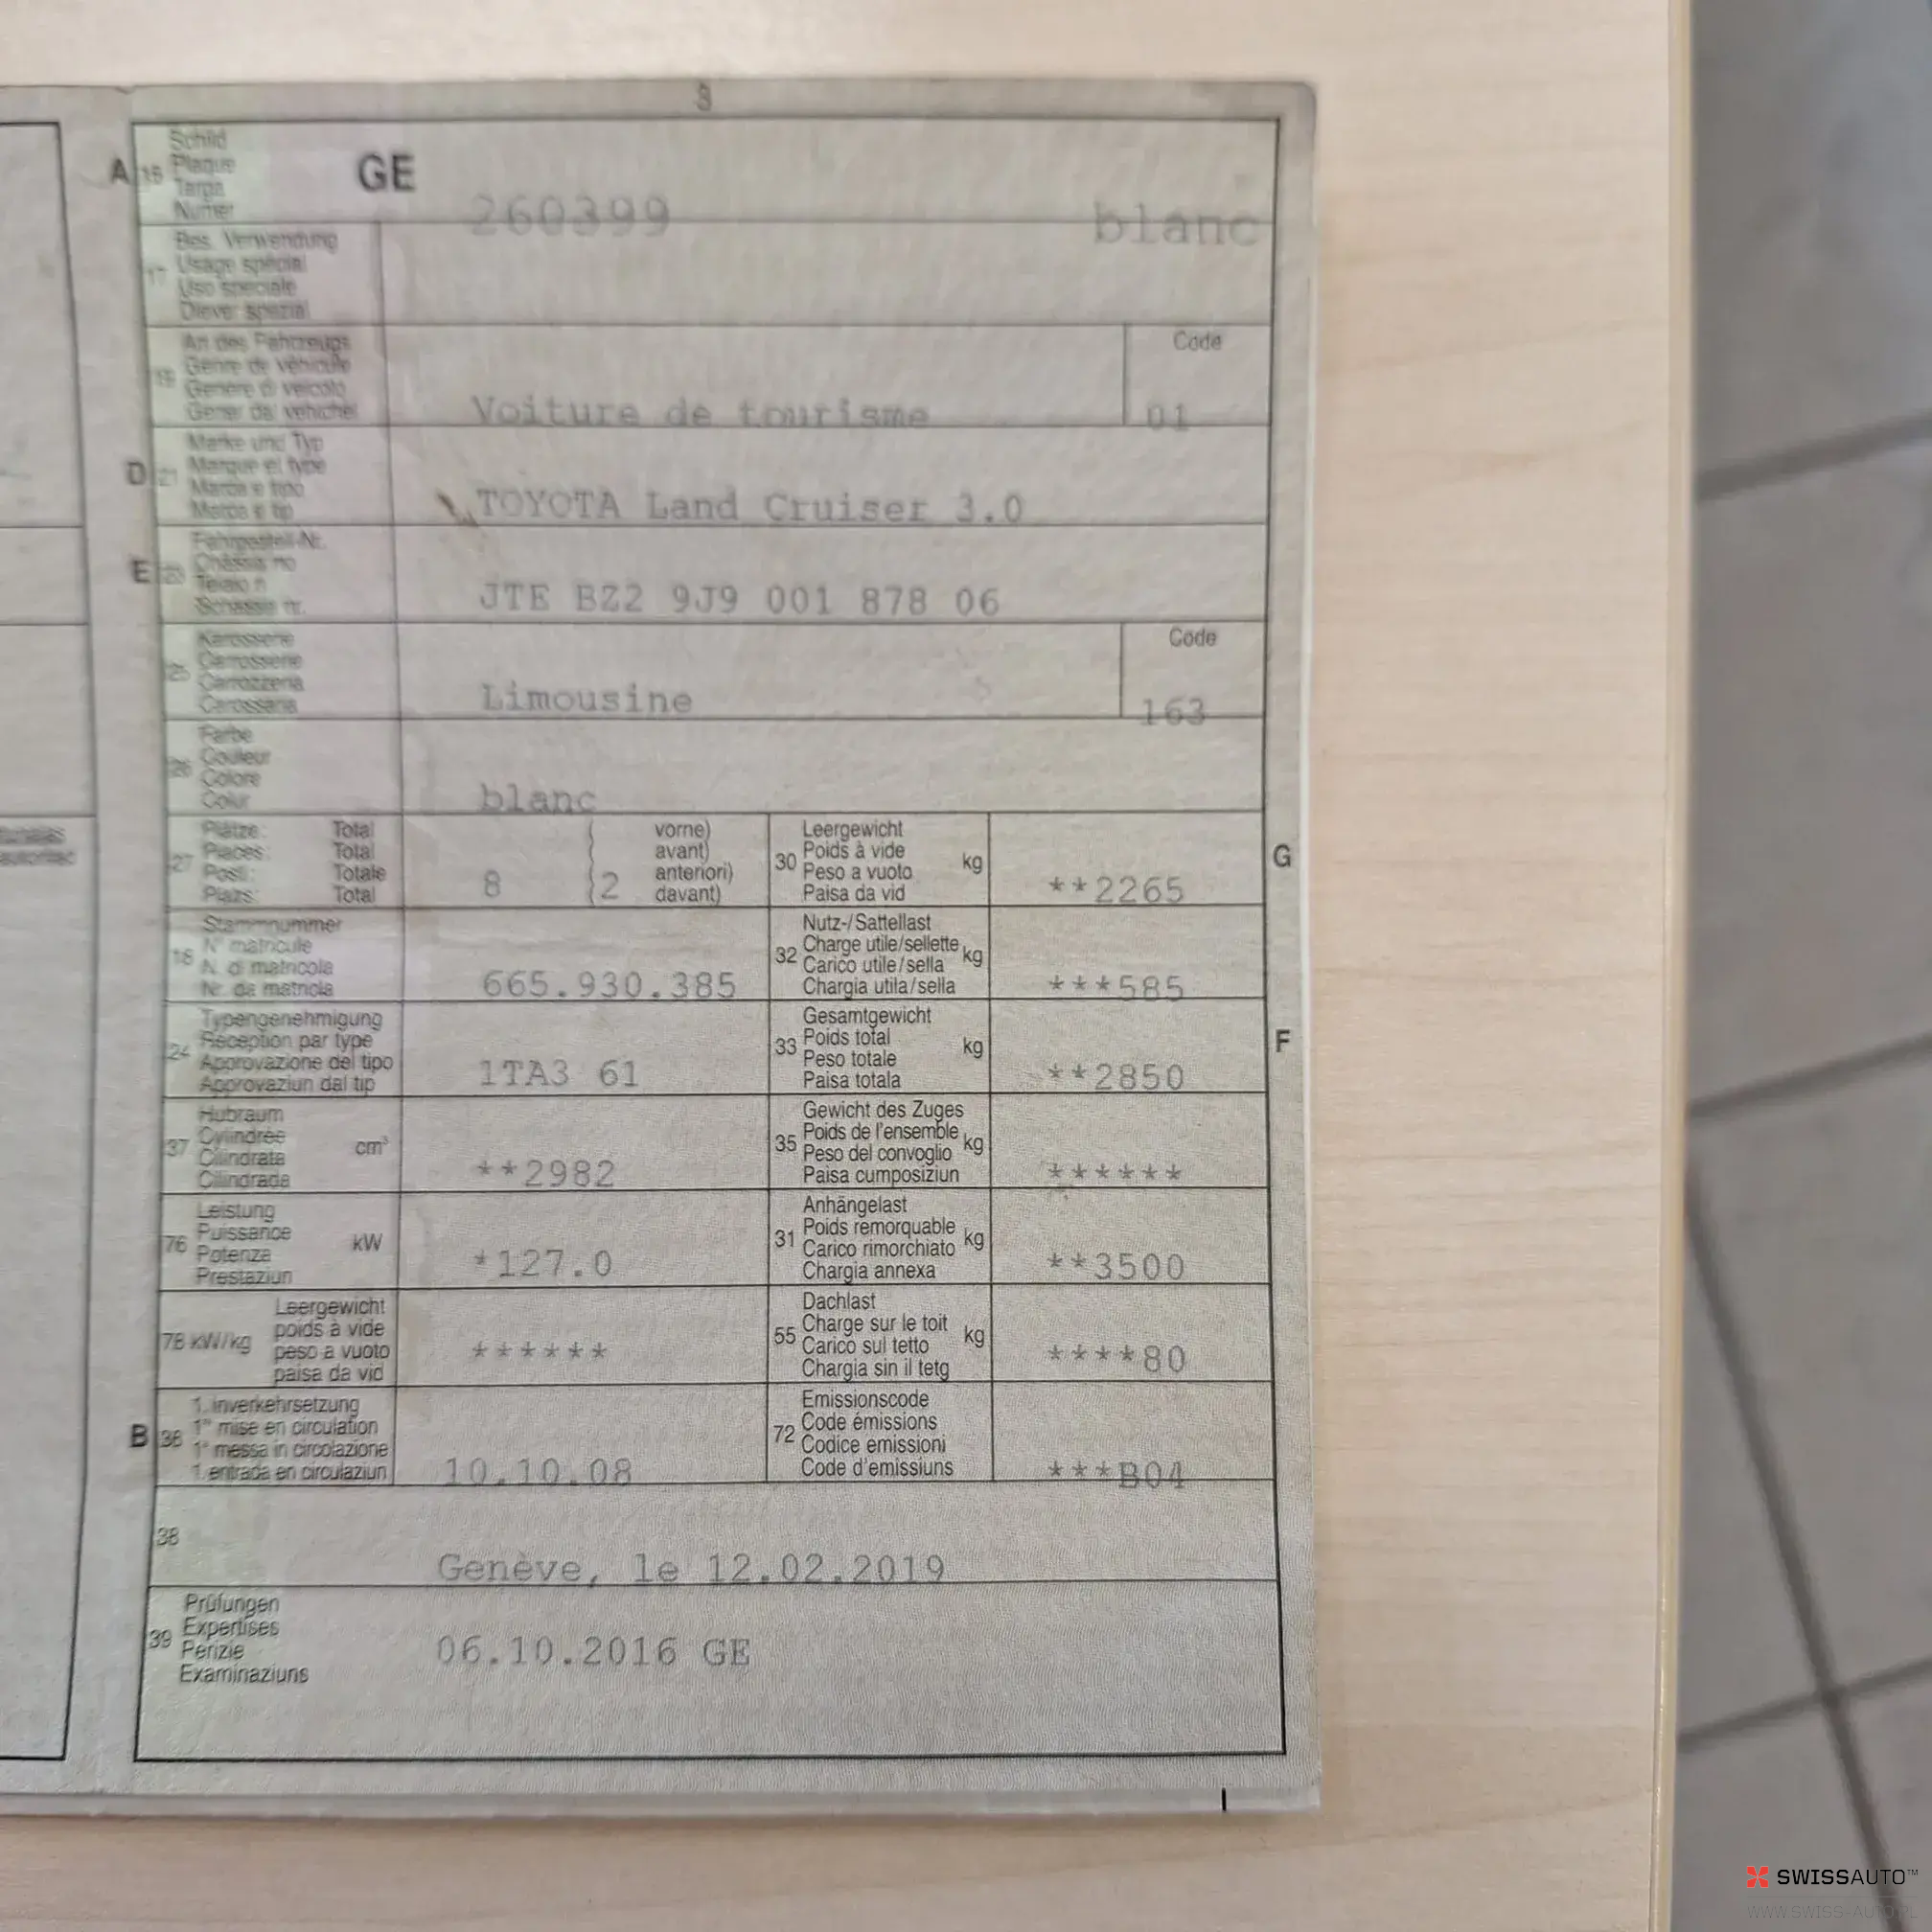 A 15 Schild
Plaque
Targa
Numer
GE 260399 blanc
17 Bes. Verwendung
Usage spécial
Uso speciale
Diever spezial
19 Art des Fahrzeugs
Genre de véhicule
Genere di veicolo
Gener da vehichel
Voiture de tourisme
Code
01
D 21 Marke und Typ
Marque et type
Marca e tipo
Marca e tip
TOYOTA Land Cruiser 3.0
E 23 Fahrgestell-Nr.
Châssis no
Telaio n
Schassis nr.
JTE BZ2 9J9 001 878 06
25 Karosserie
Carrosserie
Carrozzeria
Carossaria
Limousine
Code
163
26 Farbe
Couleur
Colore
Colur
blanc
27 Plätze: Total
Places: Total
Posti: Totale
Plazs: Total
8 (2 vorne)
avant)
anteriori)
davant)
30 Leergewicht
Poids à vide kg
Peso a vuoto
Paisa da vid
**2265
G
18 Stammnummer
N° matricule
N. di matricola
Nr. da matricla
665.930.385
32 Nutz-/Sattellast
Charge utile/sellette kg
Carico utile/sella
Chargia utila/sella
***585
24 Typengenehmigung
Réception par type
Approvazione del tipo
Approvaziun dal tip
1TA3 61
33 Gesamtgewicht
Poids total kg
Peso totale
Paisa totala
**2850
F
37 Hubraum
Cylindrée cm³
Cilindrata
Cilindrada
**2982
35 Gewicht des Zuges
Poids de l'ensemble kg
Peso del convoglio
Paisa cumposiziun
******
76 Leistung
Puissance kW
Potenza
Prestaziun
*127.0
31 Anhängelast
Poids remorquable kg
Carico rimorchiato
Chargia annexa
**3500
78 kW/kg Leergewicht
poids à vide
peso a vuoto
paisa da vid
******
55 Dachlast
Charge sur le toit kg
Carico sul tetto
Chargia sin il tetg
****80
B 36 1. Inverkehrsetzung
1re mise en circulation
1a messa in circolazione
1. entrada en circulaziun
10.10.08
72 Emissionscode
Code émissions
Codice emissioni
Code d'emissiuns
***B04
38
Genève, le 12.02.2019
39 Prüfungen
Expertises
Perizie
Examinaziuns
06.10.2016 GE
SWISSAUTO™
WWW.SWISS-AUTO.PL